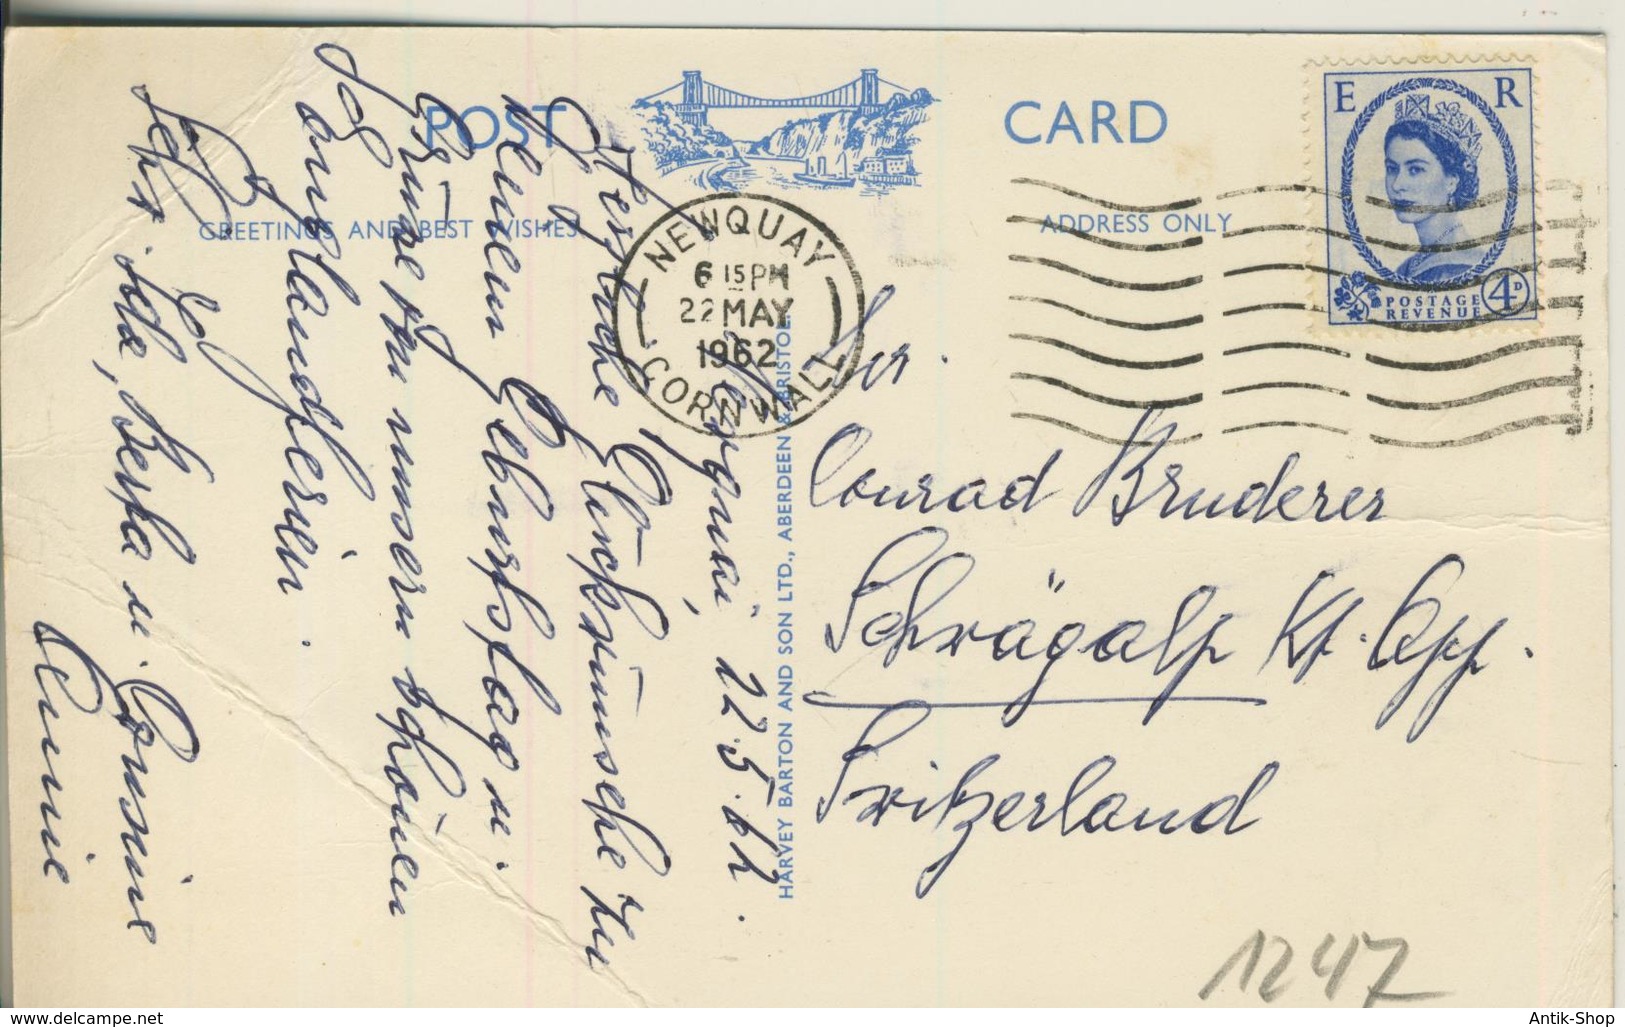 POST CARD
GREETINGS AND BEST WISHES
ADDRESS ONLY
E R
POSTAGE
REVENUE
4D
NEWQUAY
6 15PM
22 MAY
1962
CORNWALL
HARVEY BARTON AND SON LTD., ABERDEEN & BRISTOL.
Newquai, 22.5.62.
Herzliche Glückwünsche zu
Deinem Geburtstage u.
Grüsse aus unsern schönen
Englandferien.
Sehr Ida, Berta u. Cousine
Annie
Conrad Bruderer
Schwägalp Kt. App.
Switzerland
1247
Antik-Shop
www.delcampe.net